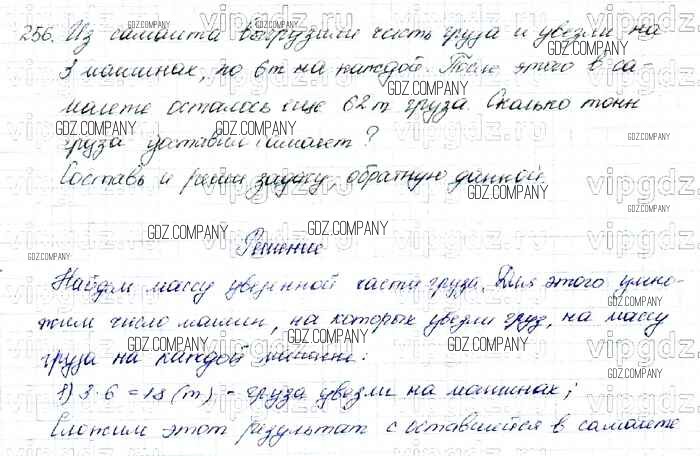 256. Из самолёта выгрузили часть груза и увезли на
3 машинах, по 6т на каждой. После этого в са-
молете осталось еще 62т груза. Сколько тонн
груза доставил самолет?
Составь и реши задачу, обратную данной.
Решение
Найдем массу увезенной части груза. Для этого умно-
жим число машин, на которых увезли груз, на массу
груза на каждой машине:
1) 3·6=18 (т) - груза увезли на машинах;
Сложим этот результат с оставшейся в самолете
GDZ.COMPANY
vipgdz.ru